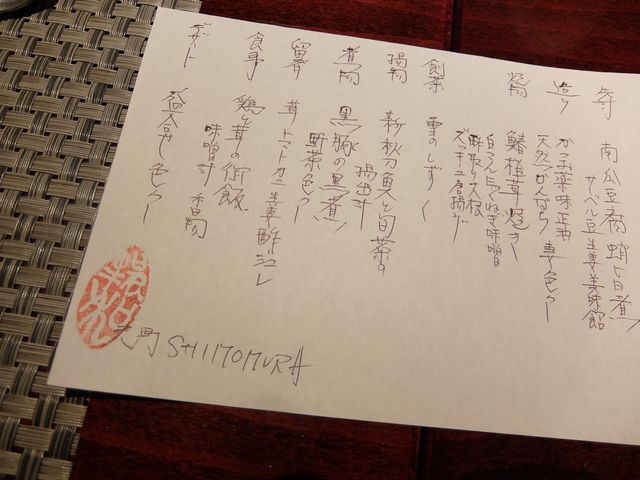 南瓜豆腐 蛸旨煮
サーベル豆 生姜美味餡
造り
かつお薬味正油
天然かんぱち
焼物
鰆椎茸焼き
白らんにくねぎ味噌
酢取り大根
創菜
雪のしずく
揚物
新秋刀魚と旬菜の
揚出汁
煮物
黒豚の黒煮
野菜色々
留肴
茸トマトカニ生姜酢ジュレ
食事
鶏と茸の御飯
味噌汁 香物
デザート
盛合せ色々
SHIMOMURA